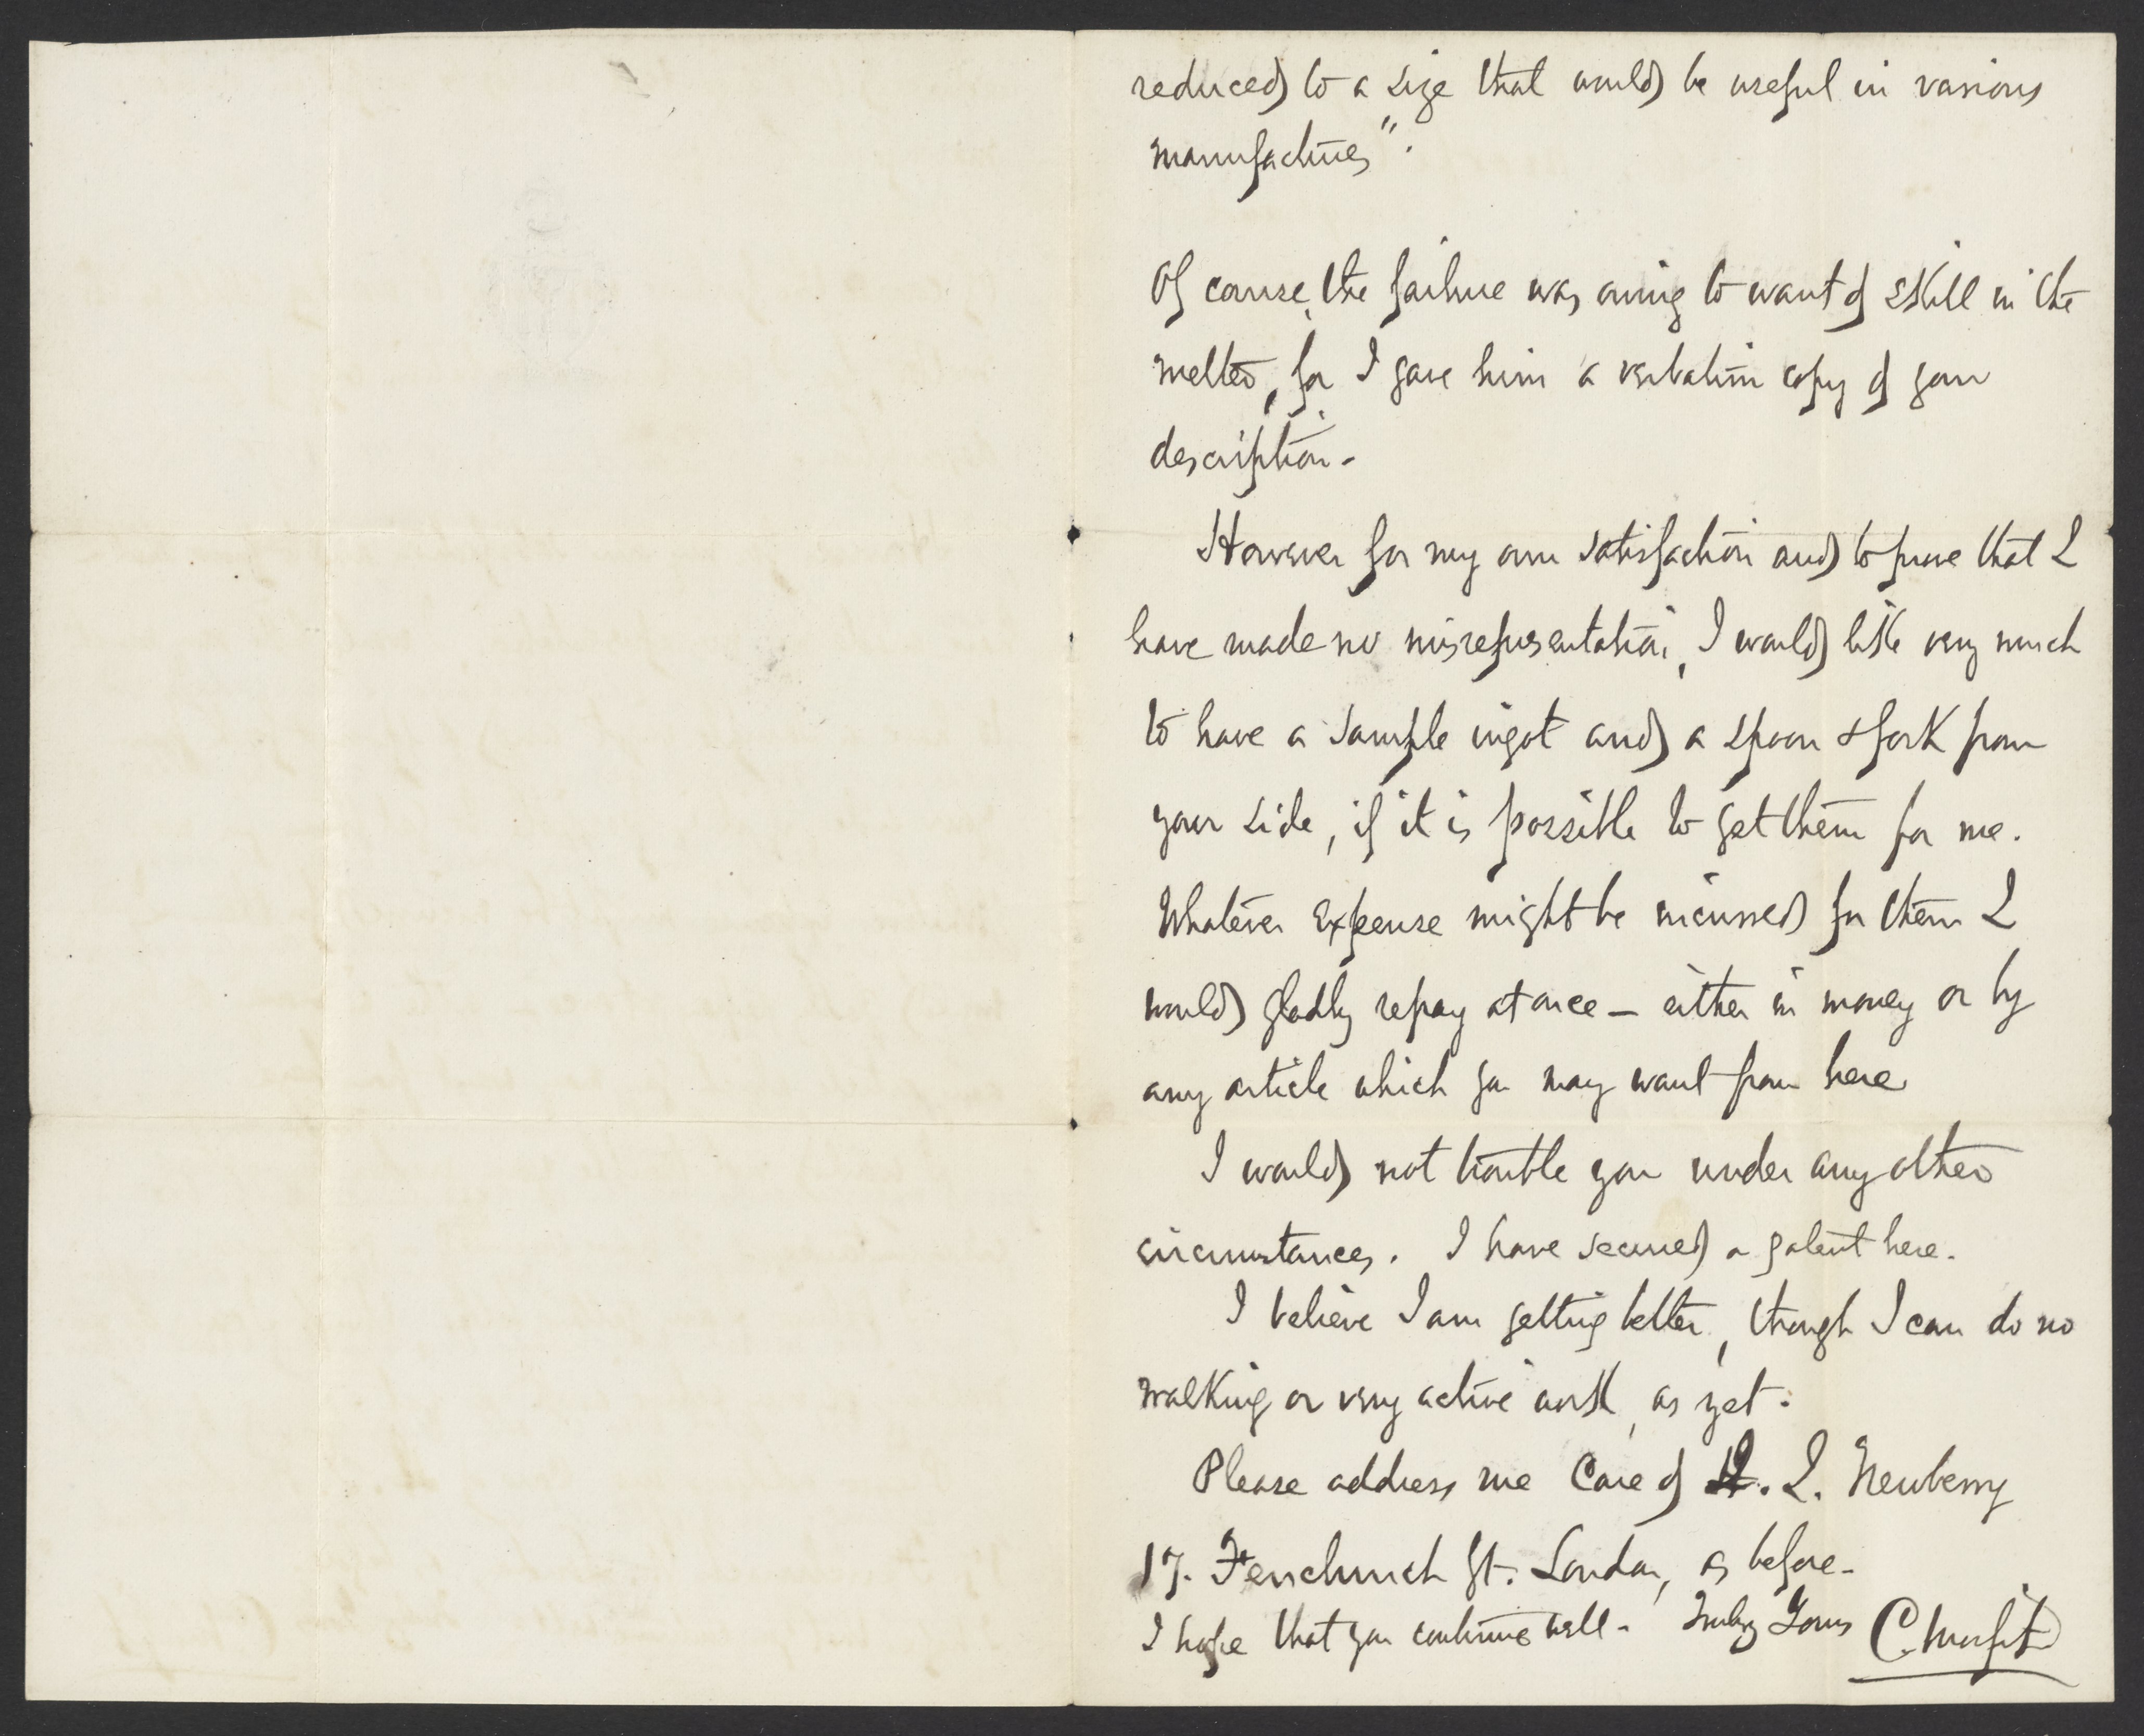 reduced to a size that would be useful in various
manufactures".
Of course, the failure was owing to want of skill in the
melter, for I gave him a verbatim copy of your
description -
However for my own satisfaction and to prove that I
have made no misrepresentation, I would like very much
to have a sample ingot and a spoon & fork from
your side, if it is possible to get them for me.
Whatever expense might be incurred for them I
would gladly repay at once - either in money or by
any article which you may want from here
I would not trouble you under any other
circumstances. I have secured a patent here.
I believe I am getting better, though I can do no
walking or very active work, as yet.
Please address me Care of H. L. Newberry
17. Fenchurch St. London, as before -
I hope that you continue well - Truly Yours C. Morfit